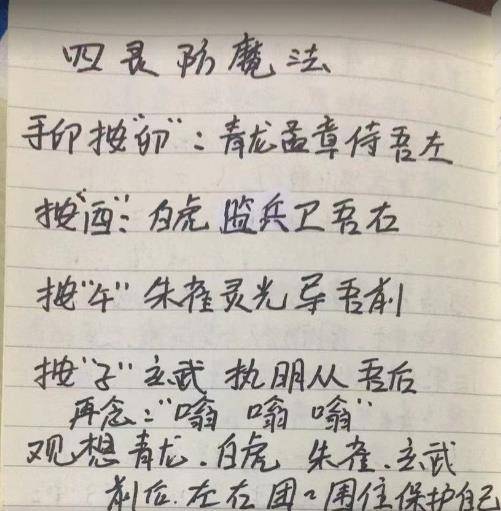 四灵防魔法
手印按"卯"：青龙孟章侍吾左
按"酉"：白虎 监兵卫吾右
按"午" 朱雀灵光导吾前
按"子" 玄武 执明从吾后
再念："嗡 嗡 嗡"
观想青龙.白虎 朱雀.玄武
前后.左右团团围住保护自己